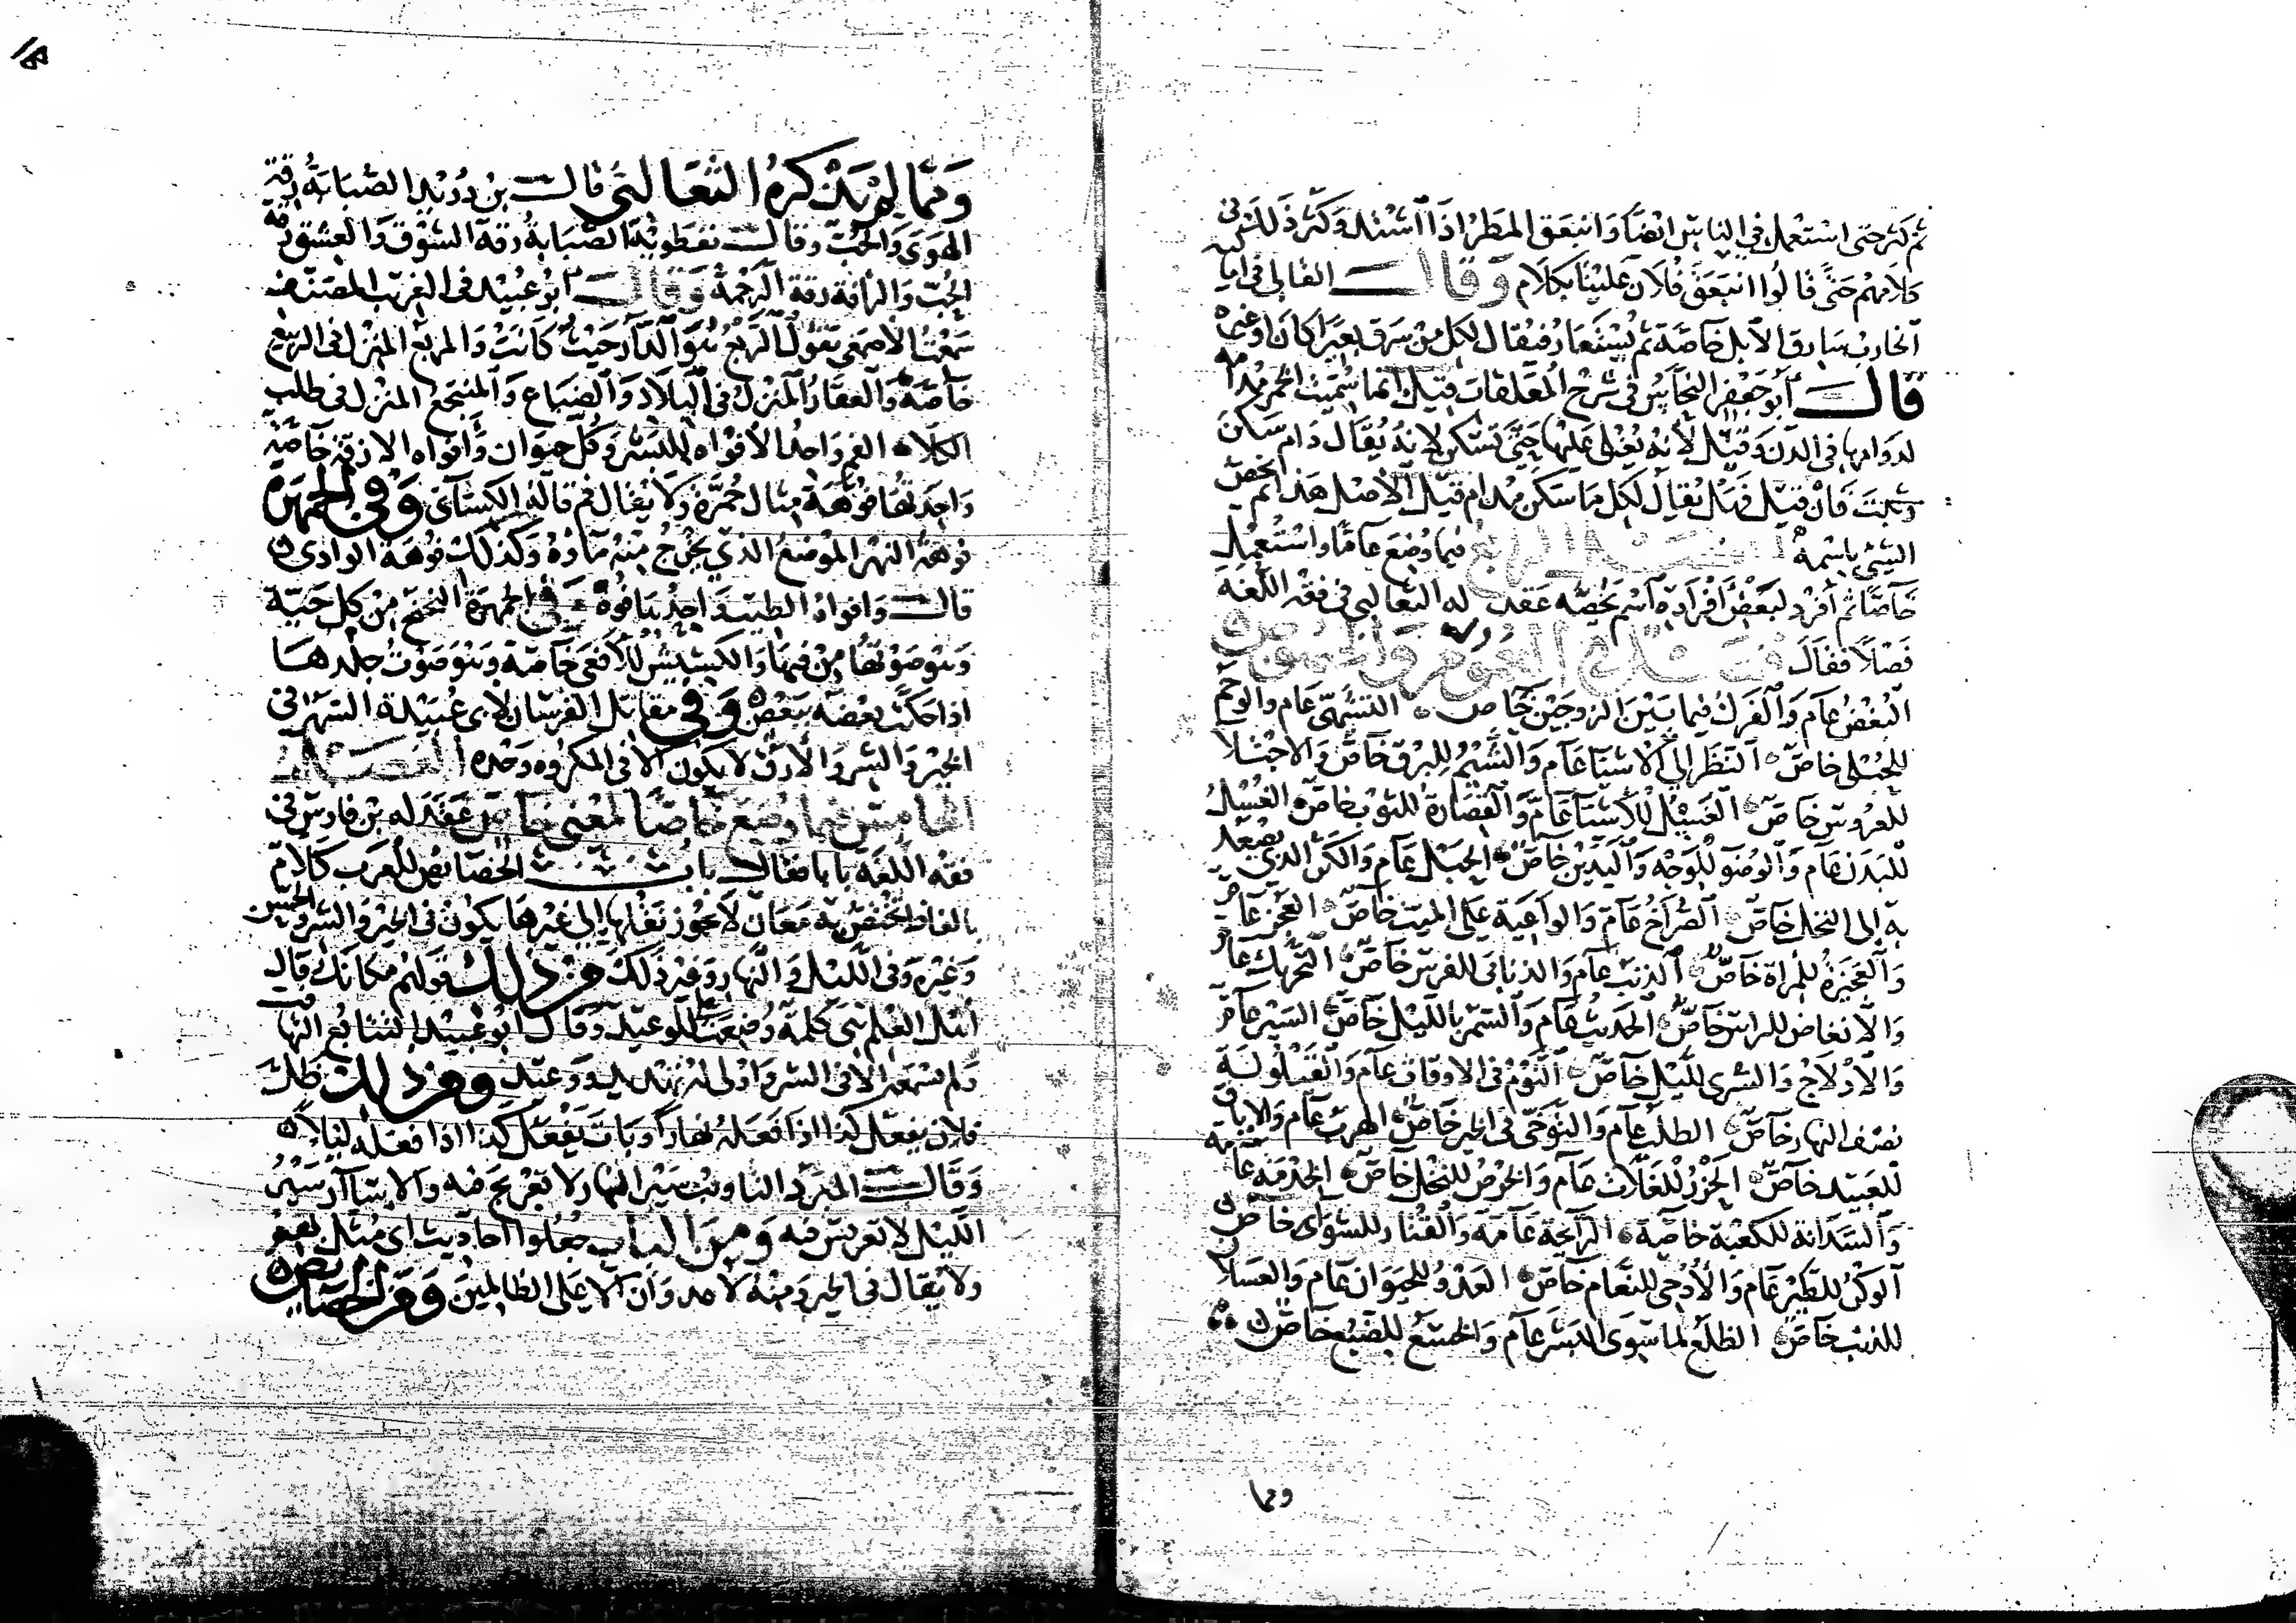 ثم كثر حتى استعمل في الناس ايضا وانبعق المطر اذا اشتد وكثر ذلك في
كلامهم حتى قالوا انبعق فلان علينا بكلام وقال القالي في اماليه
الخارب سارق الابل خاصة ثم يستعار فيقال لكل من سرق بعيرا كان او غيره
قال ابو جعفر النحاس في شرح المعلقات قيل انما سميت الخمر مدامة
لدوامها في الدن وقيل لانه يغلى عليها حتى تسكن لانه يقال دام سكن
وثبت فان قيل فهل يقال لكل ما سكن مدام قيل الاصل هذا ثم يخص
الشيئ باسمه الفصل الرابع فيما وضع عاما واستعمل
خاصا ثم افرد لبعض افراده اسم يخصه عقد له الثعالبي في فقه اللغة
فصلا فقال فصل في العموم والخصوص
البغض عام والفرك فيما بين الزوجين خاص التشهي عام والوحم
للحبلى خاص النظر الى الاشيا عام والشيم للبرق خاص والاجتلا
للعروس خاص الغسل للاشيا عام والقصارة للثوب خاص الغسل
للبدن عام والوضو للوجه واليدين خاص الحبل عام والكر الذي يصعد
به الى النخل خاص الصراخ عام والواعية على الميت خاص العجز عام
والعجيزة للمراة خاص الذنب عام والذنابى للفرس خاص التحريك عام
والانغاض للراس خاص الحديث عام والسمر بالليل خاص السير عام
والادلاج والسرى لليل خاص النوم في الاوقات عام والقيلولة
نصف النهار خاص الطلب عام والتوخي في الخير خاص الهرب عام والاباق
للعبيد خاص الحزر للغلات عام والخرص للنخل خاص الخدمة عامة
والسدانة للكعبة خاصة الرائحة عامة والقتار للشوا خاص
الوكر للطير عام والادحى للنعام خاص العدو للحيوان عام والعسلان
للذيب خاص الظلع لما سوى البشر عام والخمع للضبع خاص
ومما
ومما لم يذكره الثعالبي قال بن دريد الصبابة رقة
الهوى والحب وقال نفطويه الصبابة رقة الشوق والعشق رقة
الحب والرافة رقة الرحمة وقال ابو عبيد في الغريب المصنف
سمعت الاصمعي يقول الربع هو الدار حيث كانت والمربع المنزل في الربيع
خاصة والعقار المنزل في البلاد والضياع والمنتجع المنزل في طلب
الكلا الفم واحد الافواه للبشر وكل حيوان وافواه الازقة خاصة
واحدتها فوهة مثال حمرة ولا يقال فم قاله الكسائي وفي الجمهرة
فوهة النهر الموضع الذي يخرج منه ماوه وكذلك فوهة الوادي
قال وافواه الطيب واحدها فوه وفي الجمهرة الفحيح من كل حية
وهو صوتها من فيها والكشيش للافعى خاصة وهو صوت جلدها
اذا حكت بعضه ببعض وفي مقاتل الفرسان لابي عبيدة السهم في
الخير والشر والارق لا يكون الا في المكروه وحده الفصل
الخامس فيما وضع خاصا لمعنى خاص عقد له بن فارس في
فقه اللغة بابا فقال باب الخصائص للعرب كلام
بالفاظ تختص به معان لا يجوز نقلها الى غيرها يكون في الخير والشر والحسن
وغيره وفي الليل والنهار وغير ذلك من ذلك قولهم مكانك قال
اهل العلم هي كلمة وضعت على الوعيد وقال ابو عبيد التتابع التهافت
ولم نسمعه الا في الشر واولى له تهديد ووعيد ومن ذلك ظل
فلان يفعل كذا اذا فعله نهارا وبات يفعل كذا اذا فعله ليلا
وقال المبرد التاويب سير النهار لا تعريج فيه والاسئاد سير
الليل لا تعريس فيه ومن الباب جعلوا احاديث اي مثل بهم
ولا يقال في الخير ومنه لا عدوان الا على الظالمين ومن الخصائص